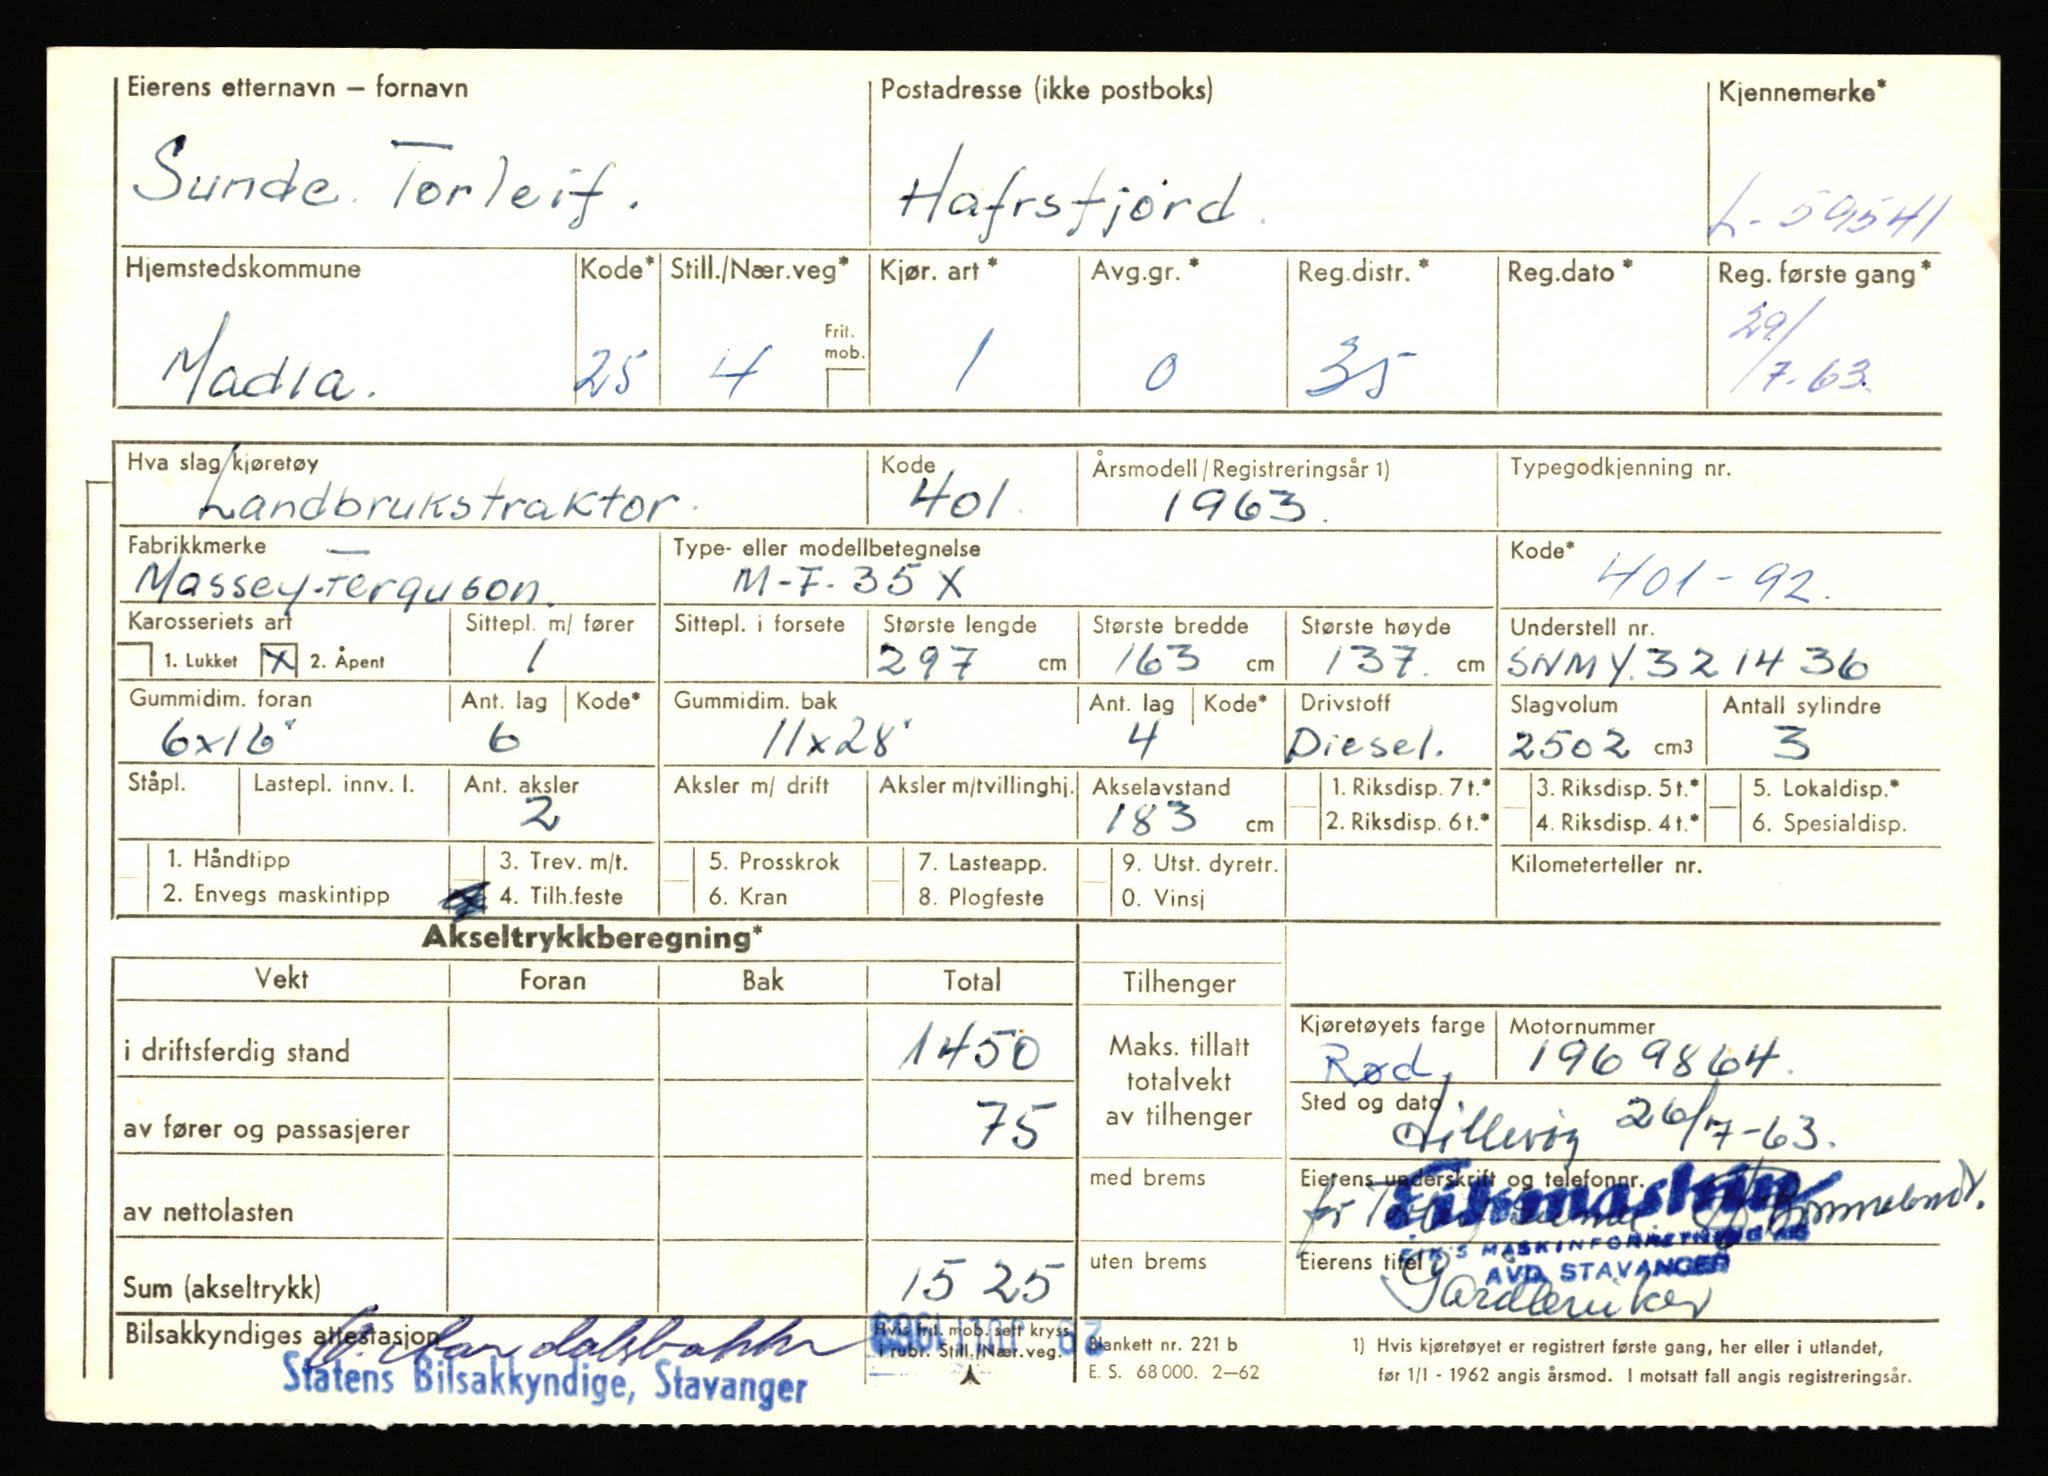 Eierens etternavn – fornavn Postadresse (ikke postboks) Kjennemerke*
Sunde Torleif. Hafrsfjord. L-59541
Hjemstedskommune Kode* Still./Nær.veg* Kjør. art* Avg.gr.* Reg.distr.* Reg.dato* Reg. første gang*
Frit. mob.
Madla. 25 4 1 0 35 29/7-63.
Hva slag kjøretøy Kode Årsmodell/Registreringsår 1) Typegodkjenning nr.
Landbrukstraktor. 401. 1963.
Fabrikkmerke Type- eller modellbetegnelse Kode*
Massey-Ferguson. M-F-35 X 401-92.
Karosseriets art Sittepl. m/ fører Sittepl. i forsete Største lengde Største bredde Største høyde Understell nr.
1. Lukket X 2. Åpent 1 297 cm 163 cm 137. cm SNMY.321436
Gummidim. foran Ant. lag Kode* Gummidim. bak Ant. lag Kode* Drivstoff Slagvolum Antall sylindre
6x16" 6 11x28" 4 Diesel. 2502 cm3 3
Ståpl. Lastepl. innv. l. Ant. aksler Aksler m/ drift Aksler m/tvillinghj. Akselavstand 1. Riksdisp. 7 t.* 3. Riksdisp. 5 t.* 5. Lokaldisp.*
2 183 cm 2. Riksdisp. 6 t.* 4. Riksdisp. 4 t.* 6. Spesialdisp.
1. Håndtipp 3. Trev. m/t. 5. Prosskrok 7. Lasteapp. 9. Utst. dyretr. Kilometerteller nr.
2. Envegs maskintipp 4. Tilh.feste 6. Kran 8. Plogfeste 0. Vinsj
Akseltrykkberegning*
Vekt Foran Bak Total Tilhenger
i driftsferdig stand 1450 Maks. tillatt totalvekt av tilhenger
Kjøretøyets farge Motornummer
Rød. 1969864.
av fører og passasjerer 75
Sted og dato
26/7-63.
av nettolasten med brems
Eierens underskrift og telefonnr.
for
Eikmaskin
EIK'S MASKINFORRETNING AS
AVD. STAVANGER
Sum (akseltrykk) 1525 uten brems
Eierens titel
Gårdbruker
Bilsakkyndiges attestasjon
Statens Bilsakkyndige, Stavanger
Hvis frit. mob. sett kryss
i rubr. Still./Nær.veg.
Blankett nr. 221 b
E. S. 68 000. 2–62
1) Hvis kjøretøyet er registrert første gang, her eller i utlandet,
før 1/1 - 1962 angis årsmod. I motsatt fall angis registreringsår.